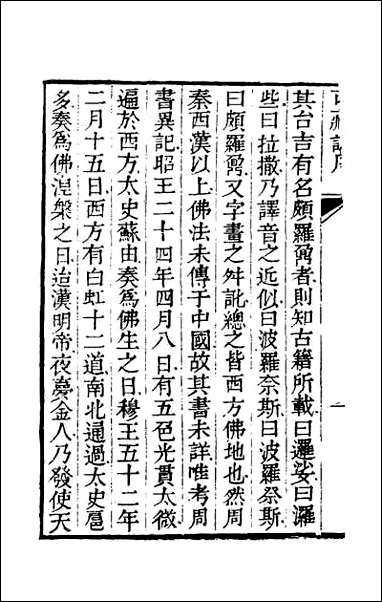 其台吉有名頗羅鼐者則知古籍所載曰邏娑曰羅
些曰拉撒乃譯音之近似曰波羅奈斯曰波羅祭斯
曰頗羅鼐又字畫之舛訛總之皆西方佛地也然周
秦西漢以上佛法未傳于中國故其書未詳唯考周
書異記昭王二十四年四月八日有五色光貫太微
遍於西方太史蘇由奏爲佛生之日穆王五十二年
二月十五日西方有白虹十二道南北通過太史扈
多奏爲佛湼槃之日迨漢明帝夜夢金人乃發使天